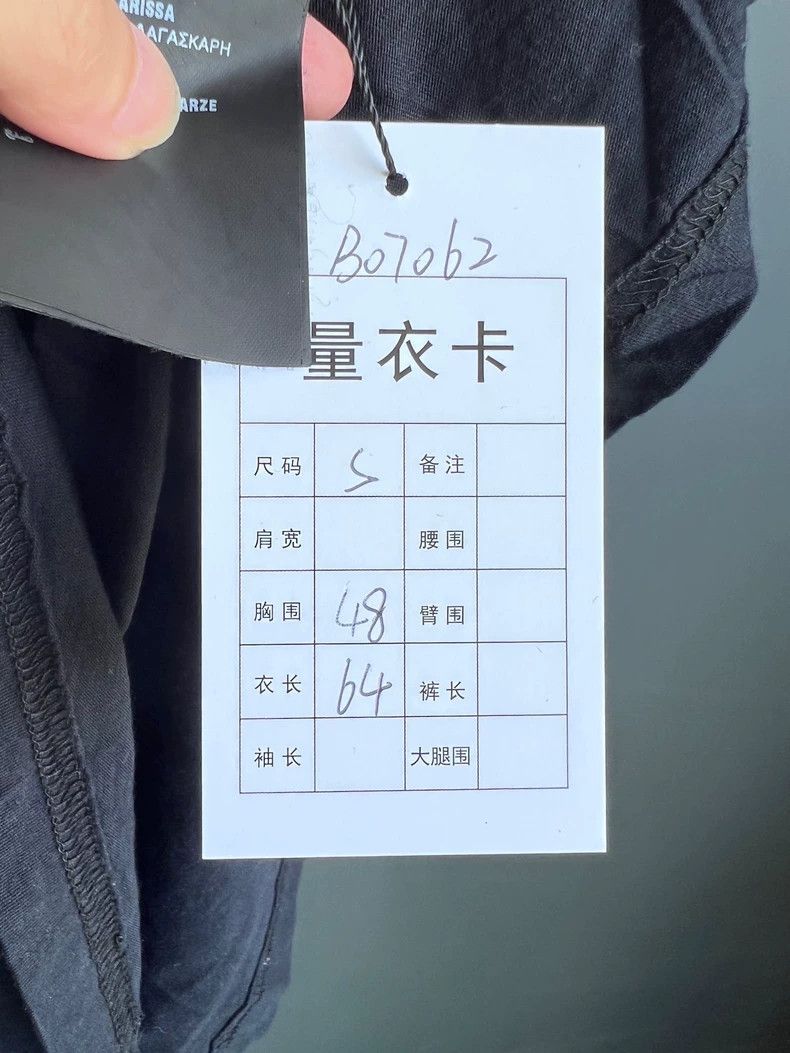 ARISSA
ΔΑΓΑΣΚΑΡΗ
ARZE
B07062
量衣卡
尺码 S 备注
肩宽 腰围
胸围 48 臂围
衣长 64 裤长
袖长 大腿围